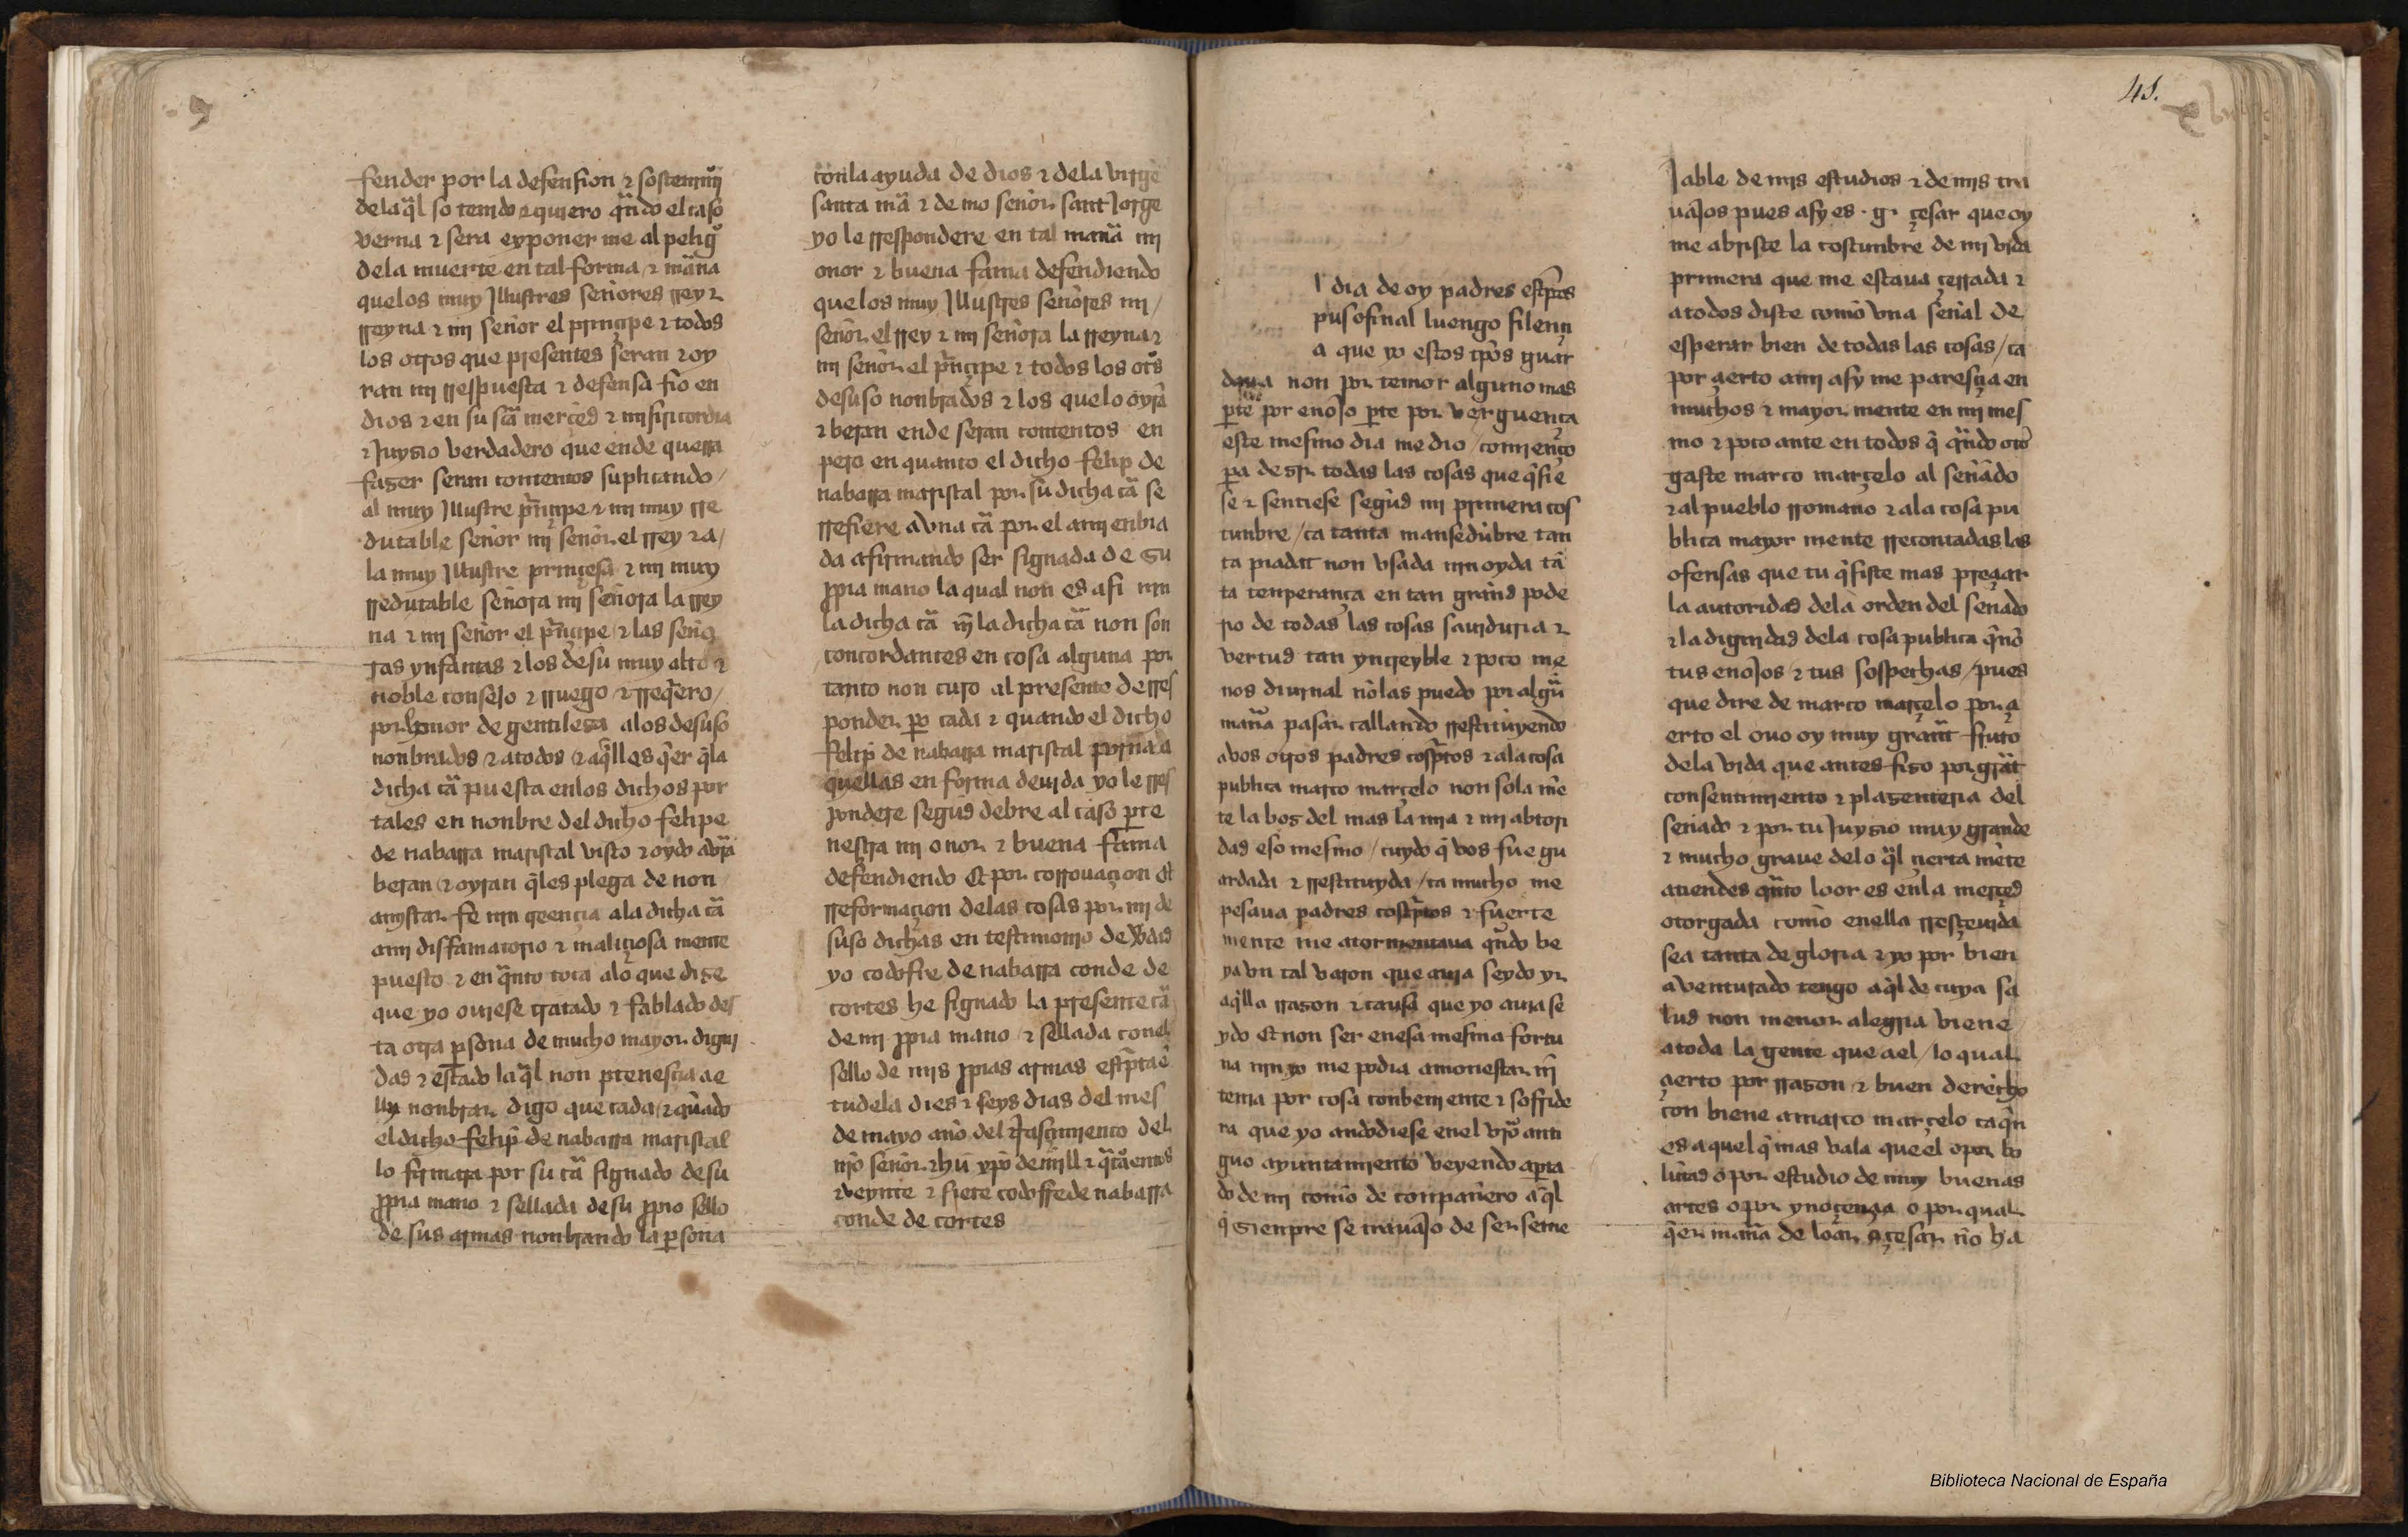 fender por la defension ⁊ sostenimj
dela q̃l so tenido ⁊ quiero q̃ndo el caso
verna ⁊ sera exponer me al pelig̊
dela muerte en tal forma ⁊ mãna
quelos muy Jllustres señores rrey ⁊
rreyna ⁊ mi señor el prinçipe ⁊ todos
los otros que presentes seran ⁊ oy
ran mi rrespuesta ⁊ defensa fio en
dios ⁊ en su sc̃a merced ⁊ misiricordia
⁊ Juysio verdadero que ende querra
faser seran contentos suplicando /
al muy Jllustre pñçipe ⁊ mi muy rre
dutable señor mj señor el rrey ⁊ a /
la muy Jllustre prinçesa ⁊ mi muy
rredutable señora mj señora la rrey
na ⁊ mi señor el pñçipe ⁊ las seño
ras ynfantas ⁊ los de su muy alto ⁊
noble consejo ⁊ rruego ⁊ rreq̃ero /
por honor de gentilesa alos desuso
nonbrados ⁊ atodos ⁊ aq̃lles q̃er q̃la
dicha cã puesta enlos dichos por
tales en nonbre del dicho felipe
de nabarra maristal visto ⁊ oydo
beran ⁊ oyran q̃les plega de non
anystar fe nin creençia ala dicha cã
ami diffamatorio ⁊ maliçiosa mente
puesto ⁊ en q̃nto toca alo que dise
que yo oviese tratado ⁊ fablado des
ta otra p̱sona de mucho mayor digni
dad ⁊ estado la q̃l non ptenesçia ae
lly nonbrar digo que cada ⁊ quãdo
el dicho felip̃ de nabarra maristal
lo firmara por su cã signado de su
ꝓpia mano ⁊ sellada de su ꝓpio sello
de sus armas nonbrando la p̱sona
conla ayuda de dios ⁊ dela virgẽ
santa mã ⁊ de mo señor sant Jorge
yo le rrespondere en tal manã mi
onor ⁊ buena fama defendiendo
quelos muy Jllustres señores mi /
señor el rrey ⁊ mi señora la rreyna ⁊
mi señor el pñçipe ⁊ todos los otõs
desuso nonbrados ⁊ los que lo oyrã
⁊ beran ende seran contentos en
pero en quanto el dicho felip de
nabarra maristal por su dicha cã se
rrefiere avna cã por el ami enbia
da afirmando ser signada de su
ꝓpia mano la qual non es asi nin
la dicha cã nj̃ la dicha cã non son
concordantes en cosa alguna por
tanto non curo al presente de rres
ponder po cada ⁊ quando el dicho
felip̃ de nabarra maristal porna a
quellas en forma devida yo le rres
pondere segũd debre al caso perte
nesçia mi onor ⁊ buena fama
defendiendo Et por corrovaçion et
rreformaçion delas cosas por mi de
suso dichas en testimonio de v̊dad
yo codofre de nabarra conde de
cortes he signado la presente cã
de mi ꝓpia mano ⁊ sellada conel
sello de mis ꝓpias armas escp̃ta ẽ
tudela dies ⁊ seys dias del mes
de mayo año del nasçimiento del
nr̃o señor ihũ xp̃o de mill ⁊ q̃troçientos
⁊ veynte ⁊ siete codoffre de nabarra
conde de cortes
41.
l dia de oy padres escp̃tos
puso final luengo silenci
a que yo estos tp̃os guar
daua non por temor alguno mas
p̱te por enojo p̱te por verguença
este mesmo dia me dio / comienço
p̱a desir todas las cosas que q̃sie
se ⁊ sentiese segũd mi primera cos
tunbre / ca tanta mansedũbre tan
ta piadat non vsada nin oyda tã
ta tenperança en tan grand pode
rio de todas las cosas sauiduria ⁊
vertud tan yncreyble ⁊ poco me
nos diuinal nõlas puedo por algũ
manã pasar callando rrestituyendo
avos otros padres cosp̃tos ⁊ ala cosa
publica marco marçelo non sola mẽ
te la bos del mas la mia ⁊ mi abtori
dad eso mesmo / cuydo q̃ vos fue gu
ardada ⁊ rrestituyda / ca mucho me
pesaua padres coscp̃tos ⁊ fuerte
mente me atormentaua q̃ndo be
ya vn tal varon que auia seydo yr
aq̃lla rrason ⁊ causa que yo auia se
ydo Et non ser enesa mesma fortu
na nin yo me podia amonestar nj̃
tenia por cosa conbeni ente ⁊ soffride
ra que yo andodiese enel vr̃o anti
guo ayuntamiento veyendo aparta
do de mi como de conpañero aq̃l
q̃ sienpre se trauajo de ser seme
Jable de mis estudios ⁊ de mis tra
uajos pues asy es · g · çesar que oy
me abriste la costunbre de mi vida
primera que me estaua çerrada ⁊
atodos diste como vna señal de
esperar bien de todas las cosas / ca
por çierto ami asy me paresçia en
muchos ⁊ mayor mente en mi mes
mo ⁊ poco ante en todos q̃ q̃ndo oto
gaste marco marçelo al senado
⁊ al pueblo rromano ⁊ ala cosa pu
blica mayor mente rrecontadas las
ofensas que tu q̃siste mas preçiar
la autoridad dela orden del senado
⁊ la dignidad dela cosa publica q̃nõ
tus enojos ⁊ tus sospechas / pues
que dire de marco marçelo por çi
erto el ouo oy muy grant fruto
dela vida que antes fiso por grãt
consentimiento ⁊ plasenteria del
senado ⁊ por tu Juysio muy grande
⁊ mucho graue delo q̃l çierta mẽte
atiendes q̃nto loor es enla merced
otorgada como enella rresçeuida
sea tanta de gloria ⁊ yo por bien
aventurado tengo aq̃l de cuya sa
lud non menor alegria viene
atoda la gente que ael / lo qual
çierto por rrason ⁊ buen derecho
con biene amarco marçelo ca q̃n
es aquel q̃ mas vala que el o por bo
lũtad o por estudio de muy buenas
artes o por ynoçençia o por qual
q̃er manã de loar o çesar nõ ha
Biblioteca Nacional de España